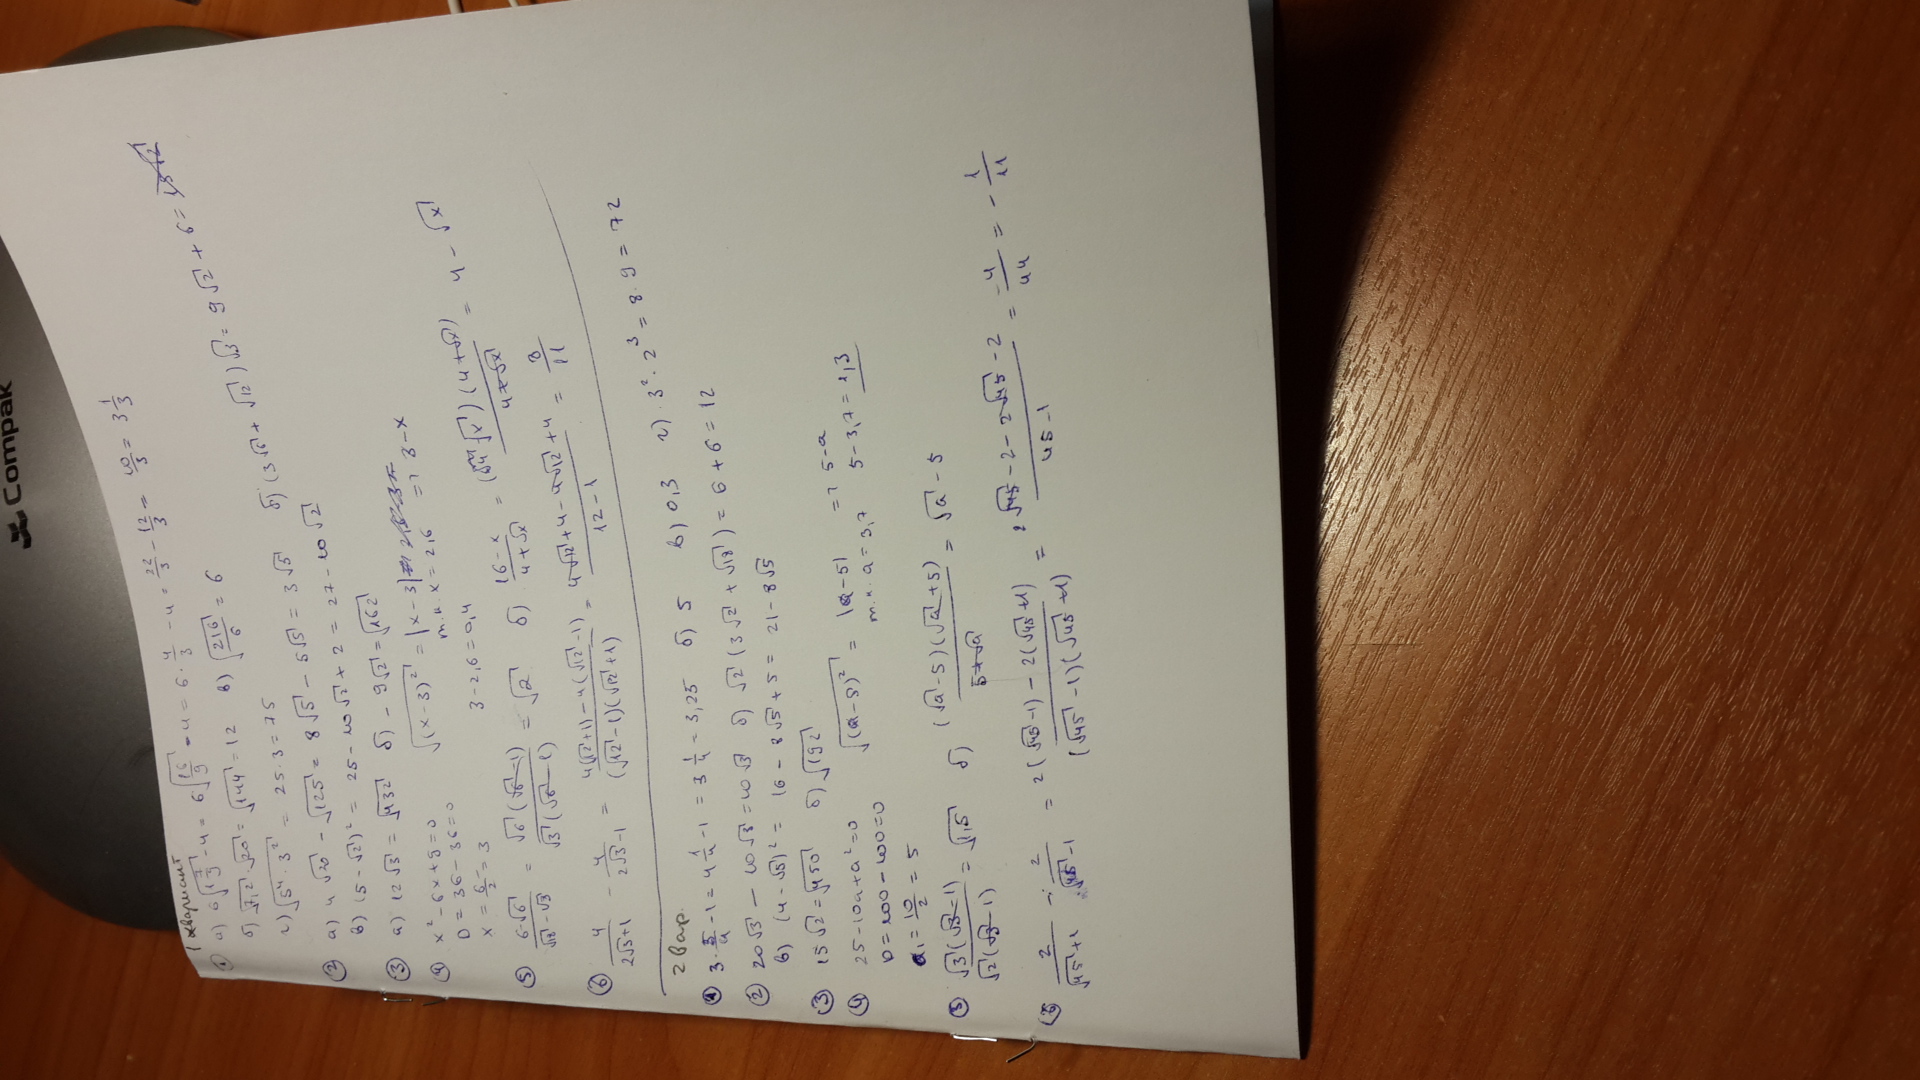 Compak
1 вариант
① а) 6√(1 7/9) - 4 = 6√(16/9) - 4 = 6 · 4/3 - 4 = 22/3 - 12/3 = 10/3 = 3 1/3
б) √7,2 · √20 = √144 = 12 в) √(216/6) = 6
г) √(5⁴ · 3²) = 25 · 3 = 75
② а) 4√20 - √125 = 8√5 - 5√5 = 3√5 б) (3√6 + √12)√3 = 9√2 + 6 =
в) (5 - √2)² = 25 - 10√2 + 2 = 27 - 10√2
③ а) 12√3 = √432 б) - 9√2 = √162
④ x² - 6x + 9 = 0 √(x-3)² = |x - 3|
D = 36 - 36 = 0 т.к. x = 2,6 => 3 - x
x = 6/2 = 3 3 - 2,6 = 0,4
⑤ 6-√6 / √18-√3 = √6(√6-1) / √3(√6-1) = √2 б) 16-x / 4+√x = (4-√x)(4+√x) / 4+√x = 4 - √x
⑥ 4 / 2√3+1 - 4 / 2√3-1 = 4(√12+1) - 4(√12-1) / (√12-1)(√12+1) = 4√12+4-4√12+4 / 12-1 = 8/11
2 вар.
① 3 · - 1 = 4 1/4 - 1 = 3 1/4 = 3,25 б) 5 в) 0,3 г) 3² · 2³ = 8 · 9 = 72
② 20√3 - 10√3 = 10√3 б) √2(3√2 + √18) = 6 + 6 = 12
в) (4 - √5)² = 16 - 8√5 + 5 = 21 - 8√5
③ 15√2 = √450 б) √192
④ 25 - 10a + a² = 0 √(a-5)² = |a - 5| => 5 - a
D = 100 - 100 = 0 т.к. a = 3,7 5 - 3,7 = 1,3
a₁ = 10/2 = 5
⑤ √3(√3-1) / √2(√3-1) = √1,5 б) (√a-5)(√a+5) / 5+√a = √a - 5
⑥ 2 / √45+1 - 2 / √45-1 = 2(√45-1) - 2(√45+1) / (√45-1)(√45+1) = 2√45-2-2√45-2 / 45-1 = -4/44 = - 1/11